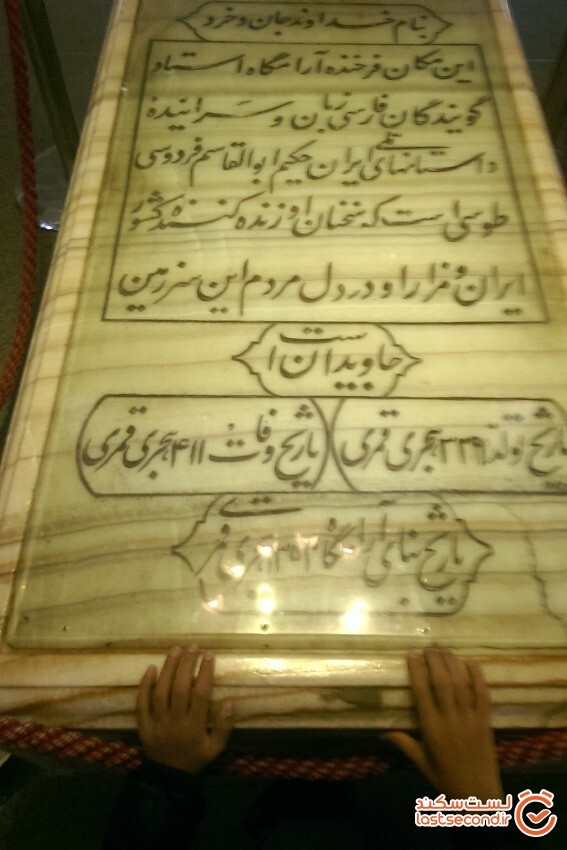 بنام خداوند جان و خرد
این مکان فرخنده آرامگاه استاد
گویندگان فارسی زبان و سراینده
داستانهای ملی ایران حکیم ابوالقاسم فردوسی
طوسی است که سخنان او زنده کننده کشور
ایران و مزار او در دل مردم این سرزمین
جاویدان است
تاریخ تولد ۳۲۹ هجری قمری
تاریخ وفات ۴۱۱ هجری قمری
تاریخ بنای آرامگاه هجری قمری
لست‌سکند
lastsecond.ir